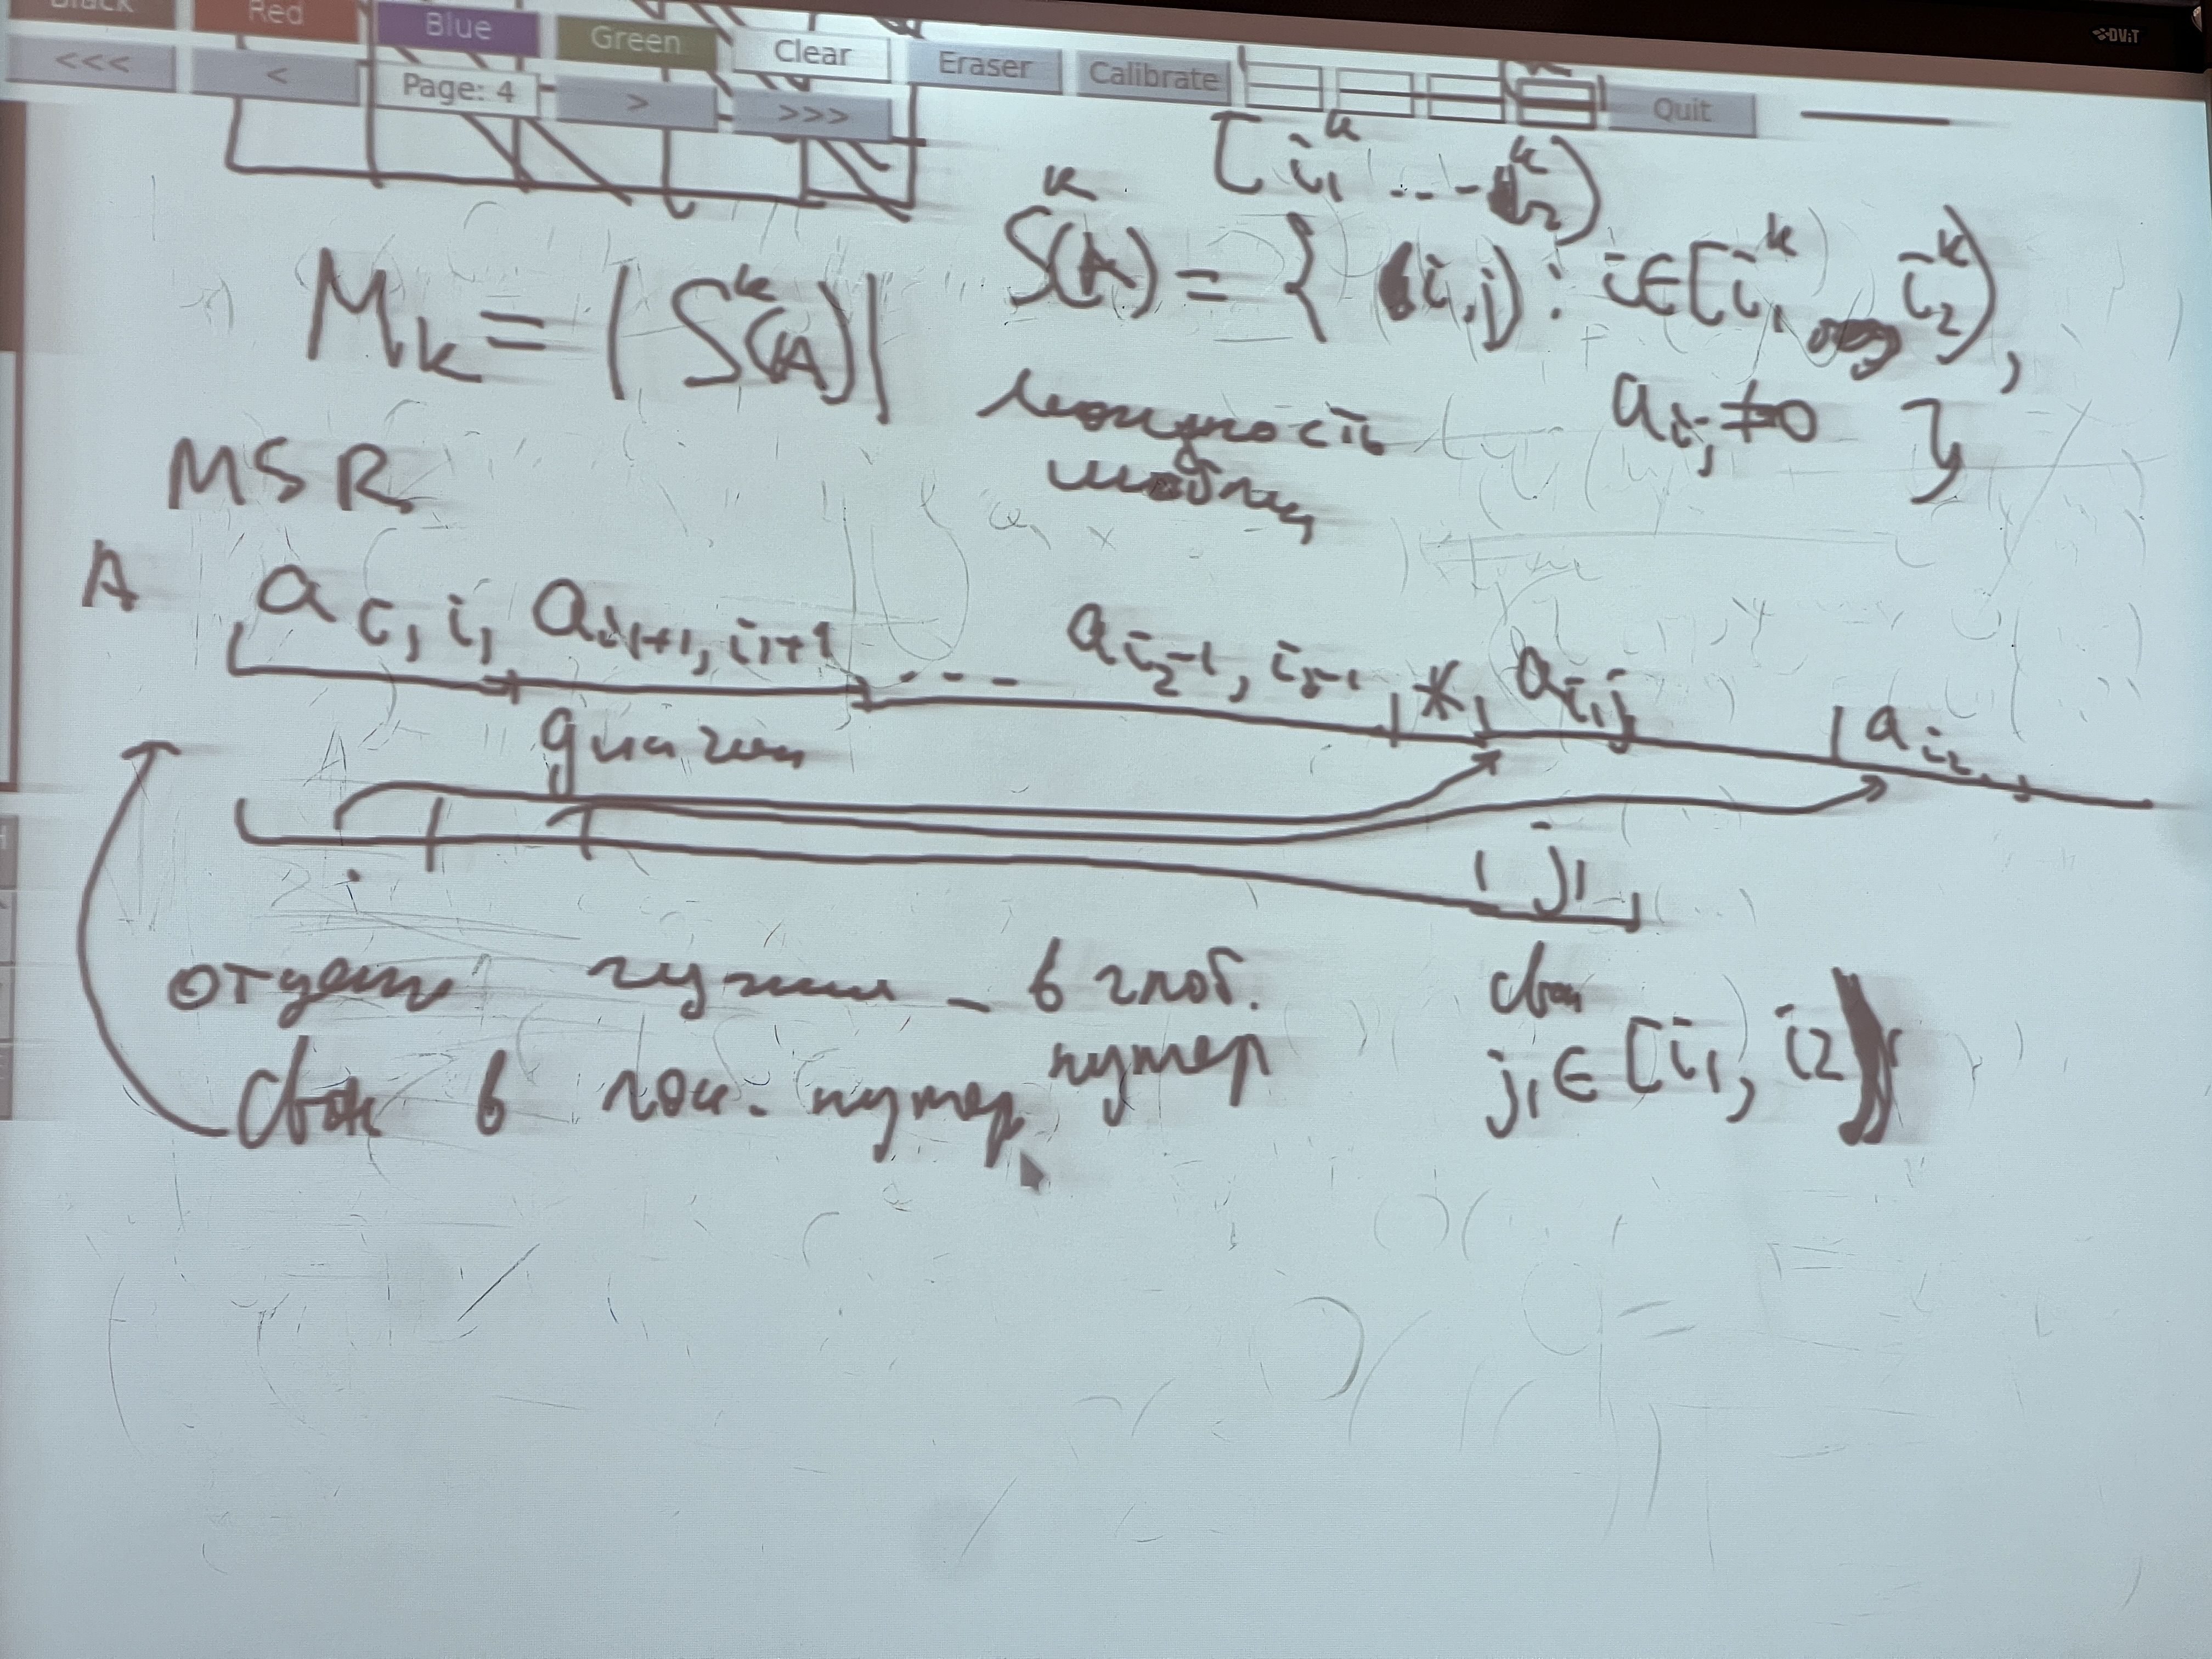 DViT
Black Red Blue Green Clear Eraser Calibrate Quit
<<< < Page: 4 > >>>
[i₁ᵏ ... i₂ᵏ)
Mₖ = |Sᵏ(A)|
Sᵏ(A) = { (i,j) : i ∈ [i₁ᵏ, i₂ᵏ),
aᵢⱼ ≠ 0 }
мощность
шаблона
MSR
A a i₁, i₁ a i₁+1, i₁+1 ... a i₂-1, i₂-1 * a i₁j a i₂, j
диагон
j₁
отдельно чужие - в глоб.
нумер
свои в лок. нумер
свои
j₁ ∈ [i₁, i₂)